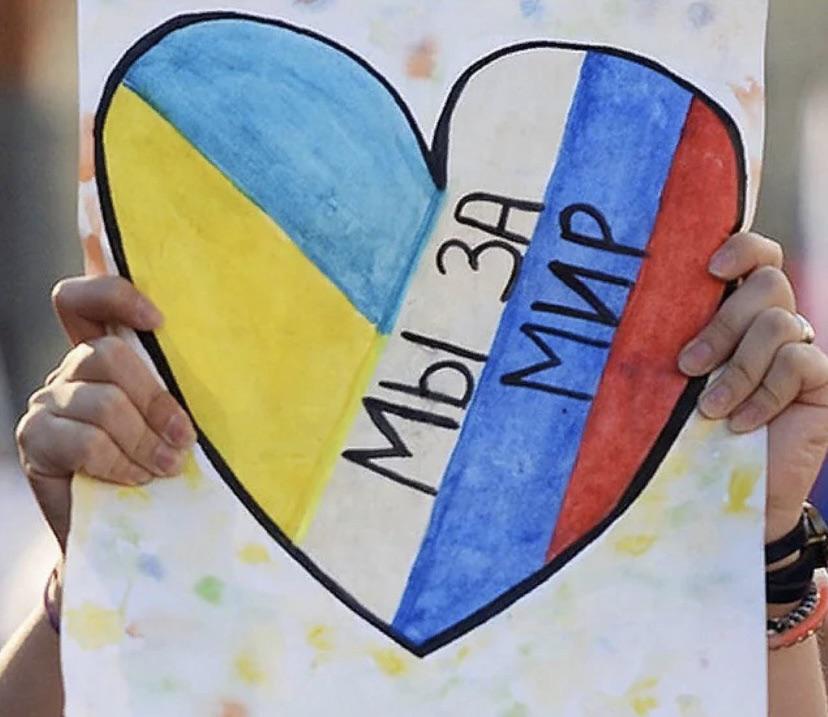 МЫ ЗА
МИР